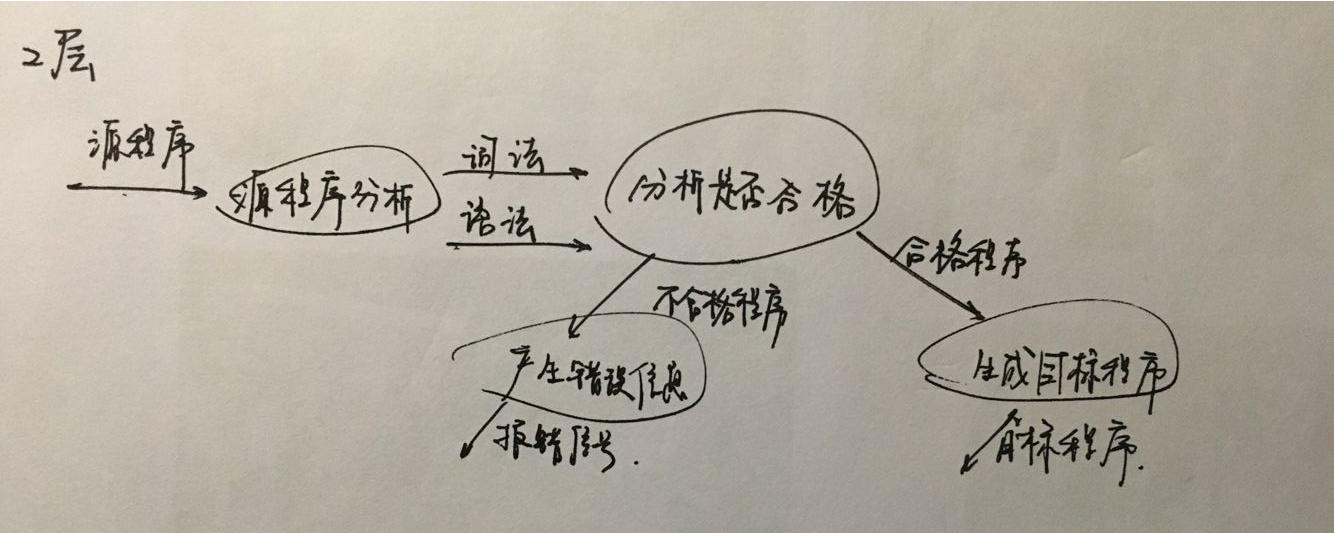 2层
源程序
源程序分析
词法
语法
分析是否合格
不合格程序
合格程序
产生错误信息
生成目标程序
报错信号.
目标程序.